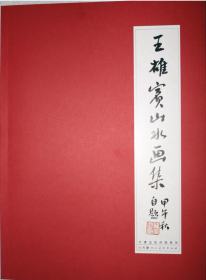 王雄宾山水画集
甲午秋
自题